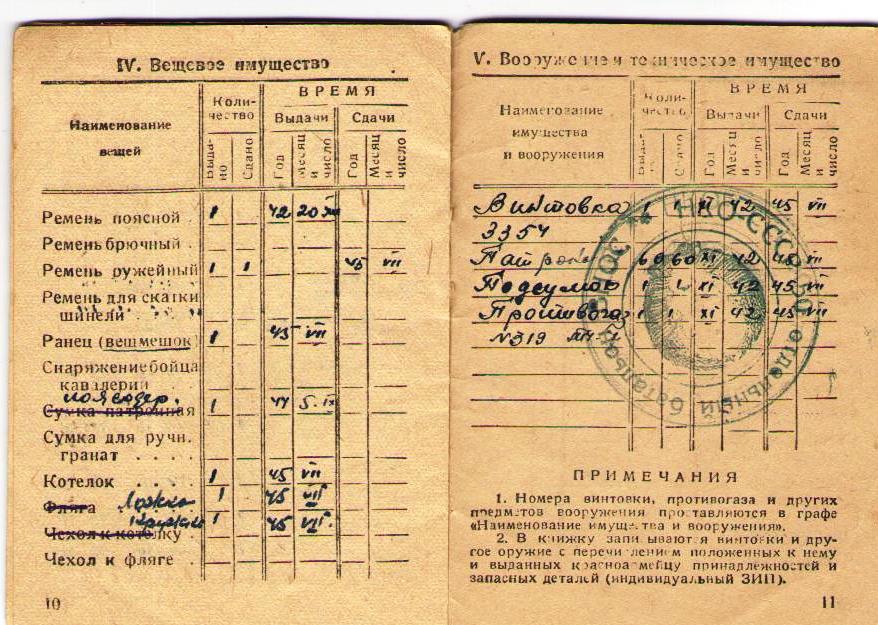 IV. Вещевое имущество
Наименование вещей
Количество
ВРЕМЯ
Выдачи
Сдачи
Выдано
Сдано
Год
Месяц и число
Год
Месяц и число
Ремень поясной . 1 42 20
Ремень брючный .
Ремень ружейный 1 1 45 VII
Ремень для скатки
шинели . . . .
Ранец (вещмешок) 1 45 VII
Снаряжение бойца
кавалерии
Сумка патронная 1 44 5. IX
Сумка для ручн.
гранат . . . .
Котелок . . . . 1 45 VII
Фляга Ложка 1 45 VII
Чехол к котелку Кружка 1 45 VII
Чехол к фляге .
10
V. Вооружение и техническое имущество
Наименование
имущества
и вооружения
Количество
ВРЕМЯ
Выдачи
Сдачи
Выдано
Сдано
Год
Месяц и число
Год
Месяц и число
Винтовка 1 1 XI 42 45 VII
3354
Патроны 60 60 XI 42 45 VII
Подсумок 1 1 XI 42 45 VII
Противогаз 1 1 XI 42 45 VII
№319
НКО-СССР отдельный батальон
ПРИМЕЧАНИЯ
1. Номера винтовки, противогаза и других
предметов вооружения проставляются в графе
«Наименование имущества и вооружения».
2. В книжку записываются винтовки и дру-
гое оружие с перечислением положенных к нему
и выданных красноармейцу принадлежностей и
запасных деталей (индивидуальный ЗИП).
11